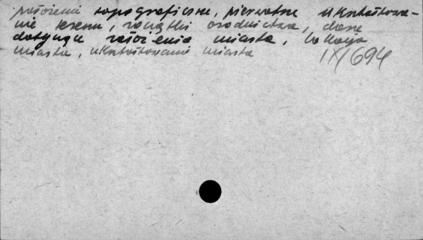 położenie topograficzne, pierwotne ukształtowa-
nie terenu, początki osadnictwa, dane
dotyczące założenia miasta, lokacja
miasta, ukształtowanie miasta IX/694